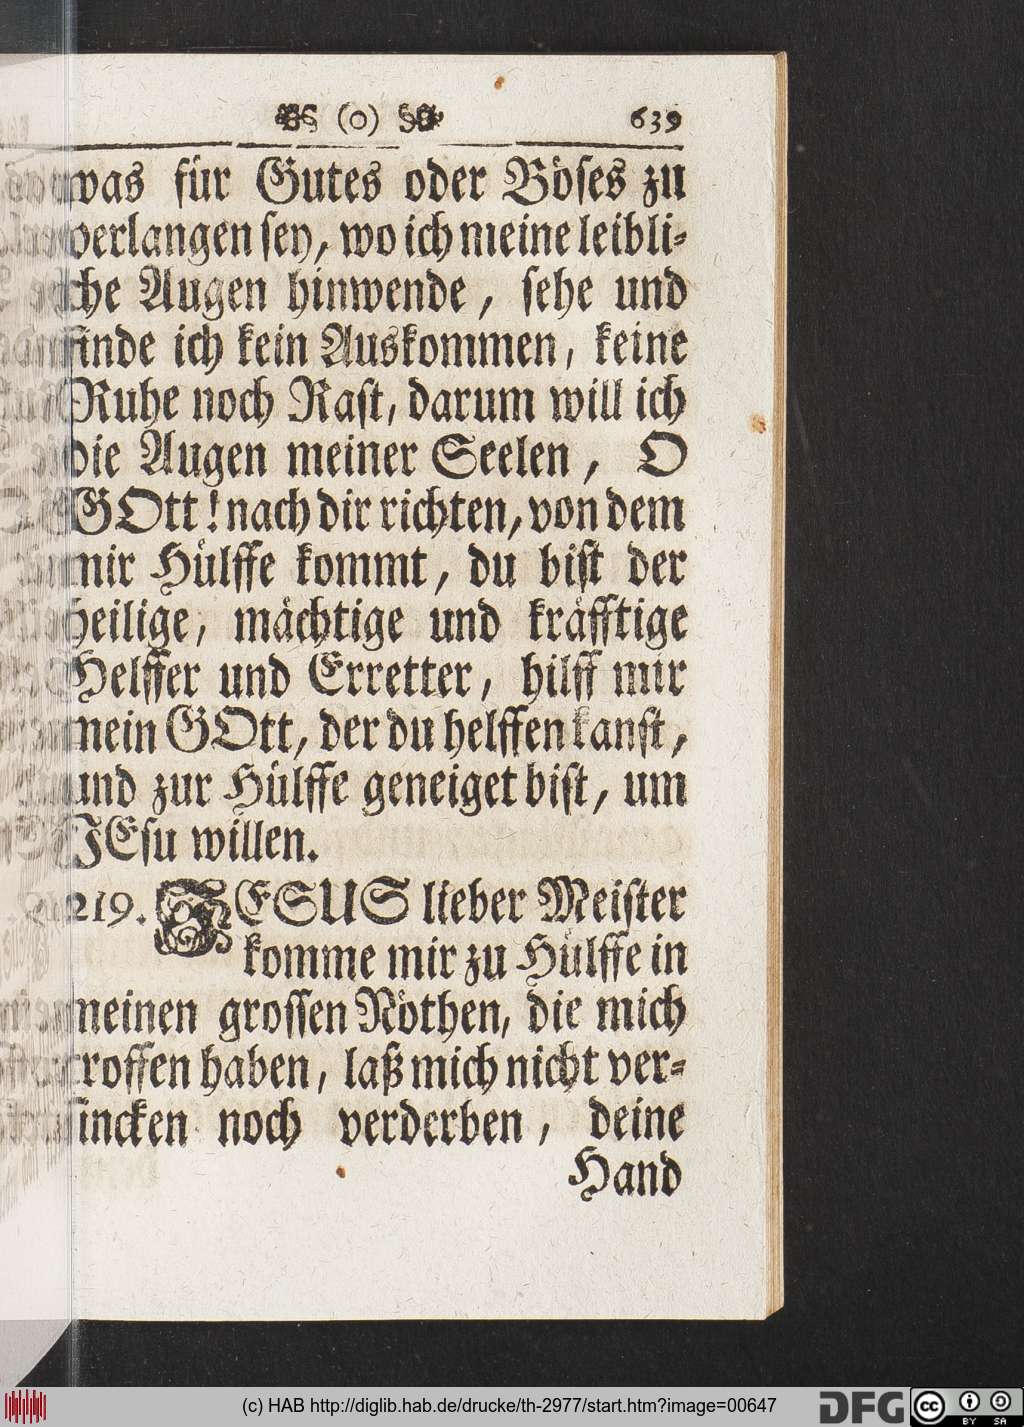 (o) 639
was für Gutes oder Böses zu
verlangen sey, wo ich meine leibli-
che Augen hinwende, sehe und
finde ich kein Auskommen, keine
Ruhe noch Rast, darum will ich
die Augen meiner Seelen, O
GOtt! nach dir richten, von dem
mir Hülffe kommt, du bist der
heilige, mächtige und kräfftige
Helffer und Erretter, hilff mir
mein GOtt, der du helffen kanst,
und zur Hülffe geneiget bist, um
JEsu willen.
219. JESUS lieber Meister
komme mir zu Hülffe in
meinen grossen Nöthen, die mich
troffen haben, laß mich nicht ver-
sincken noch verderben, deine
Hand
(c) HAB http://diglib.hab.de/drucke/th-2977/start.htm?image=00647
DFG cc BY SA